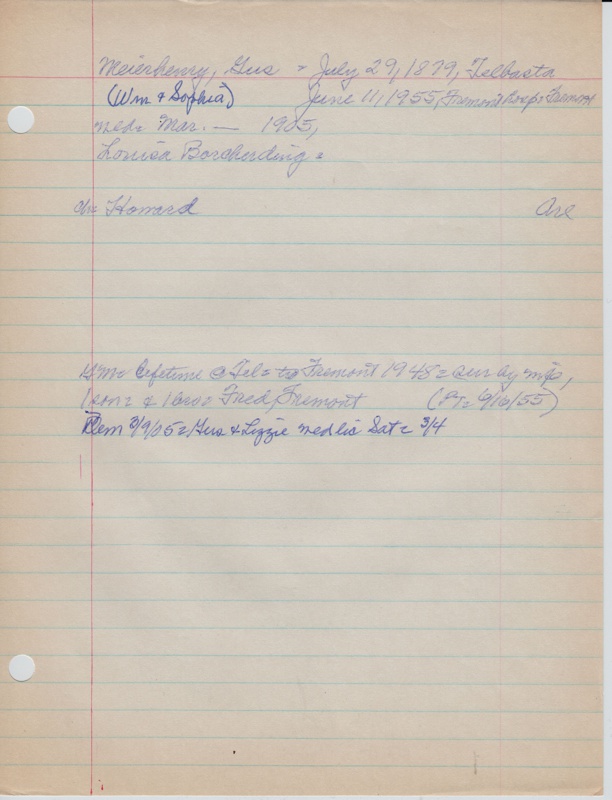 Meierhenry, Gus = July 29, 1879, Telbasta
(Wm + Sophia) June 11, 1955, Fremont Hosp = Fremont
med = Mar. — 1905,
Louisa Borcherding =
ch = Howard Arl
GM = Lifetime @ Tel = to Fremont 1948 = sur by wife,
1 son = & 1 bro = Fred, Fremont (PT = 6/16/55)
Dem 3/9/05 = Gus & Lizzie med lic Sat = 3/4